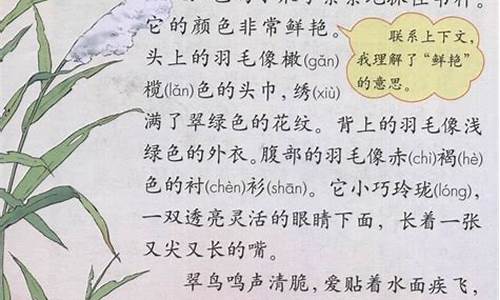 它的颜色非常鲜艳。
头上的羽毛像橄(gǎn)
榄(lǎn)色的头巾，绣(xiù)
满了翠绿色的花纹。背上的羽毛像浅
绿色的外衣。腹部的羽毛像赤(chì)褐(hè)
色的衬(chèn)衫(shān)。它小巧玲珑(lóng)，
一双透亮灵活的眼睛下面，长着一张
又尖又长的嘴。
翠鸟鸣声清脆，爱贴着水面疾飞，
联系上下文，
我理解了“鲜艳”
的意思。